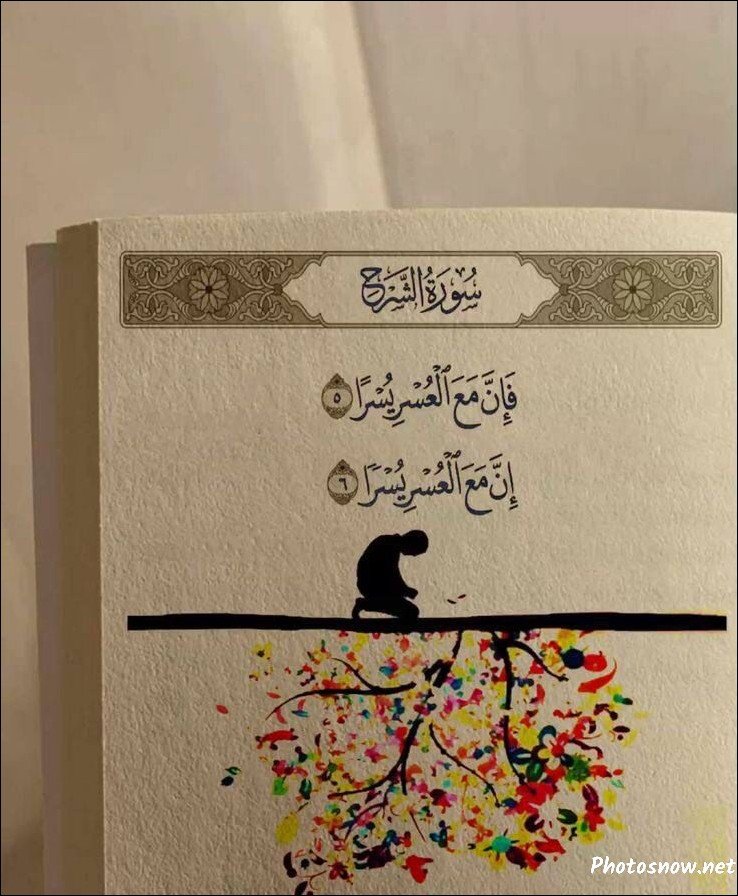 سُورَةُ الشَّرَحِ
فَإِنَّ مَعَ ٱلۡعُسۡرِ يُسۡرًا ٥
إِنَّ مَعَ ٱلۡعُسۡرِ يُسۡرًا ٦
Photosnow.net